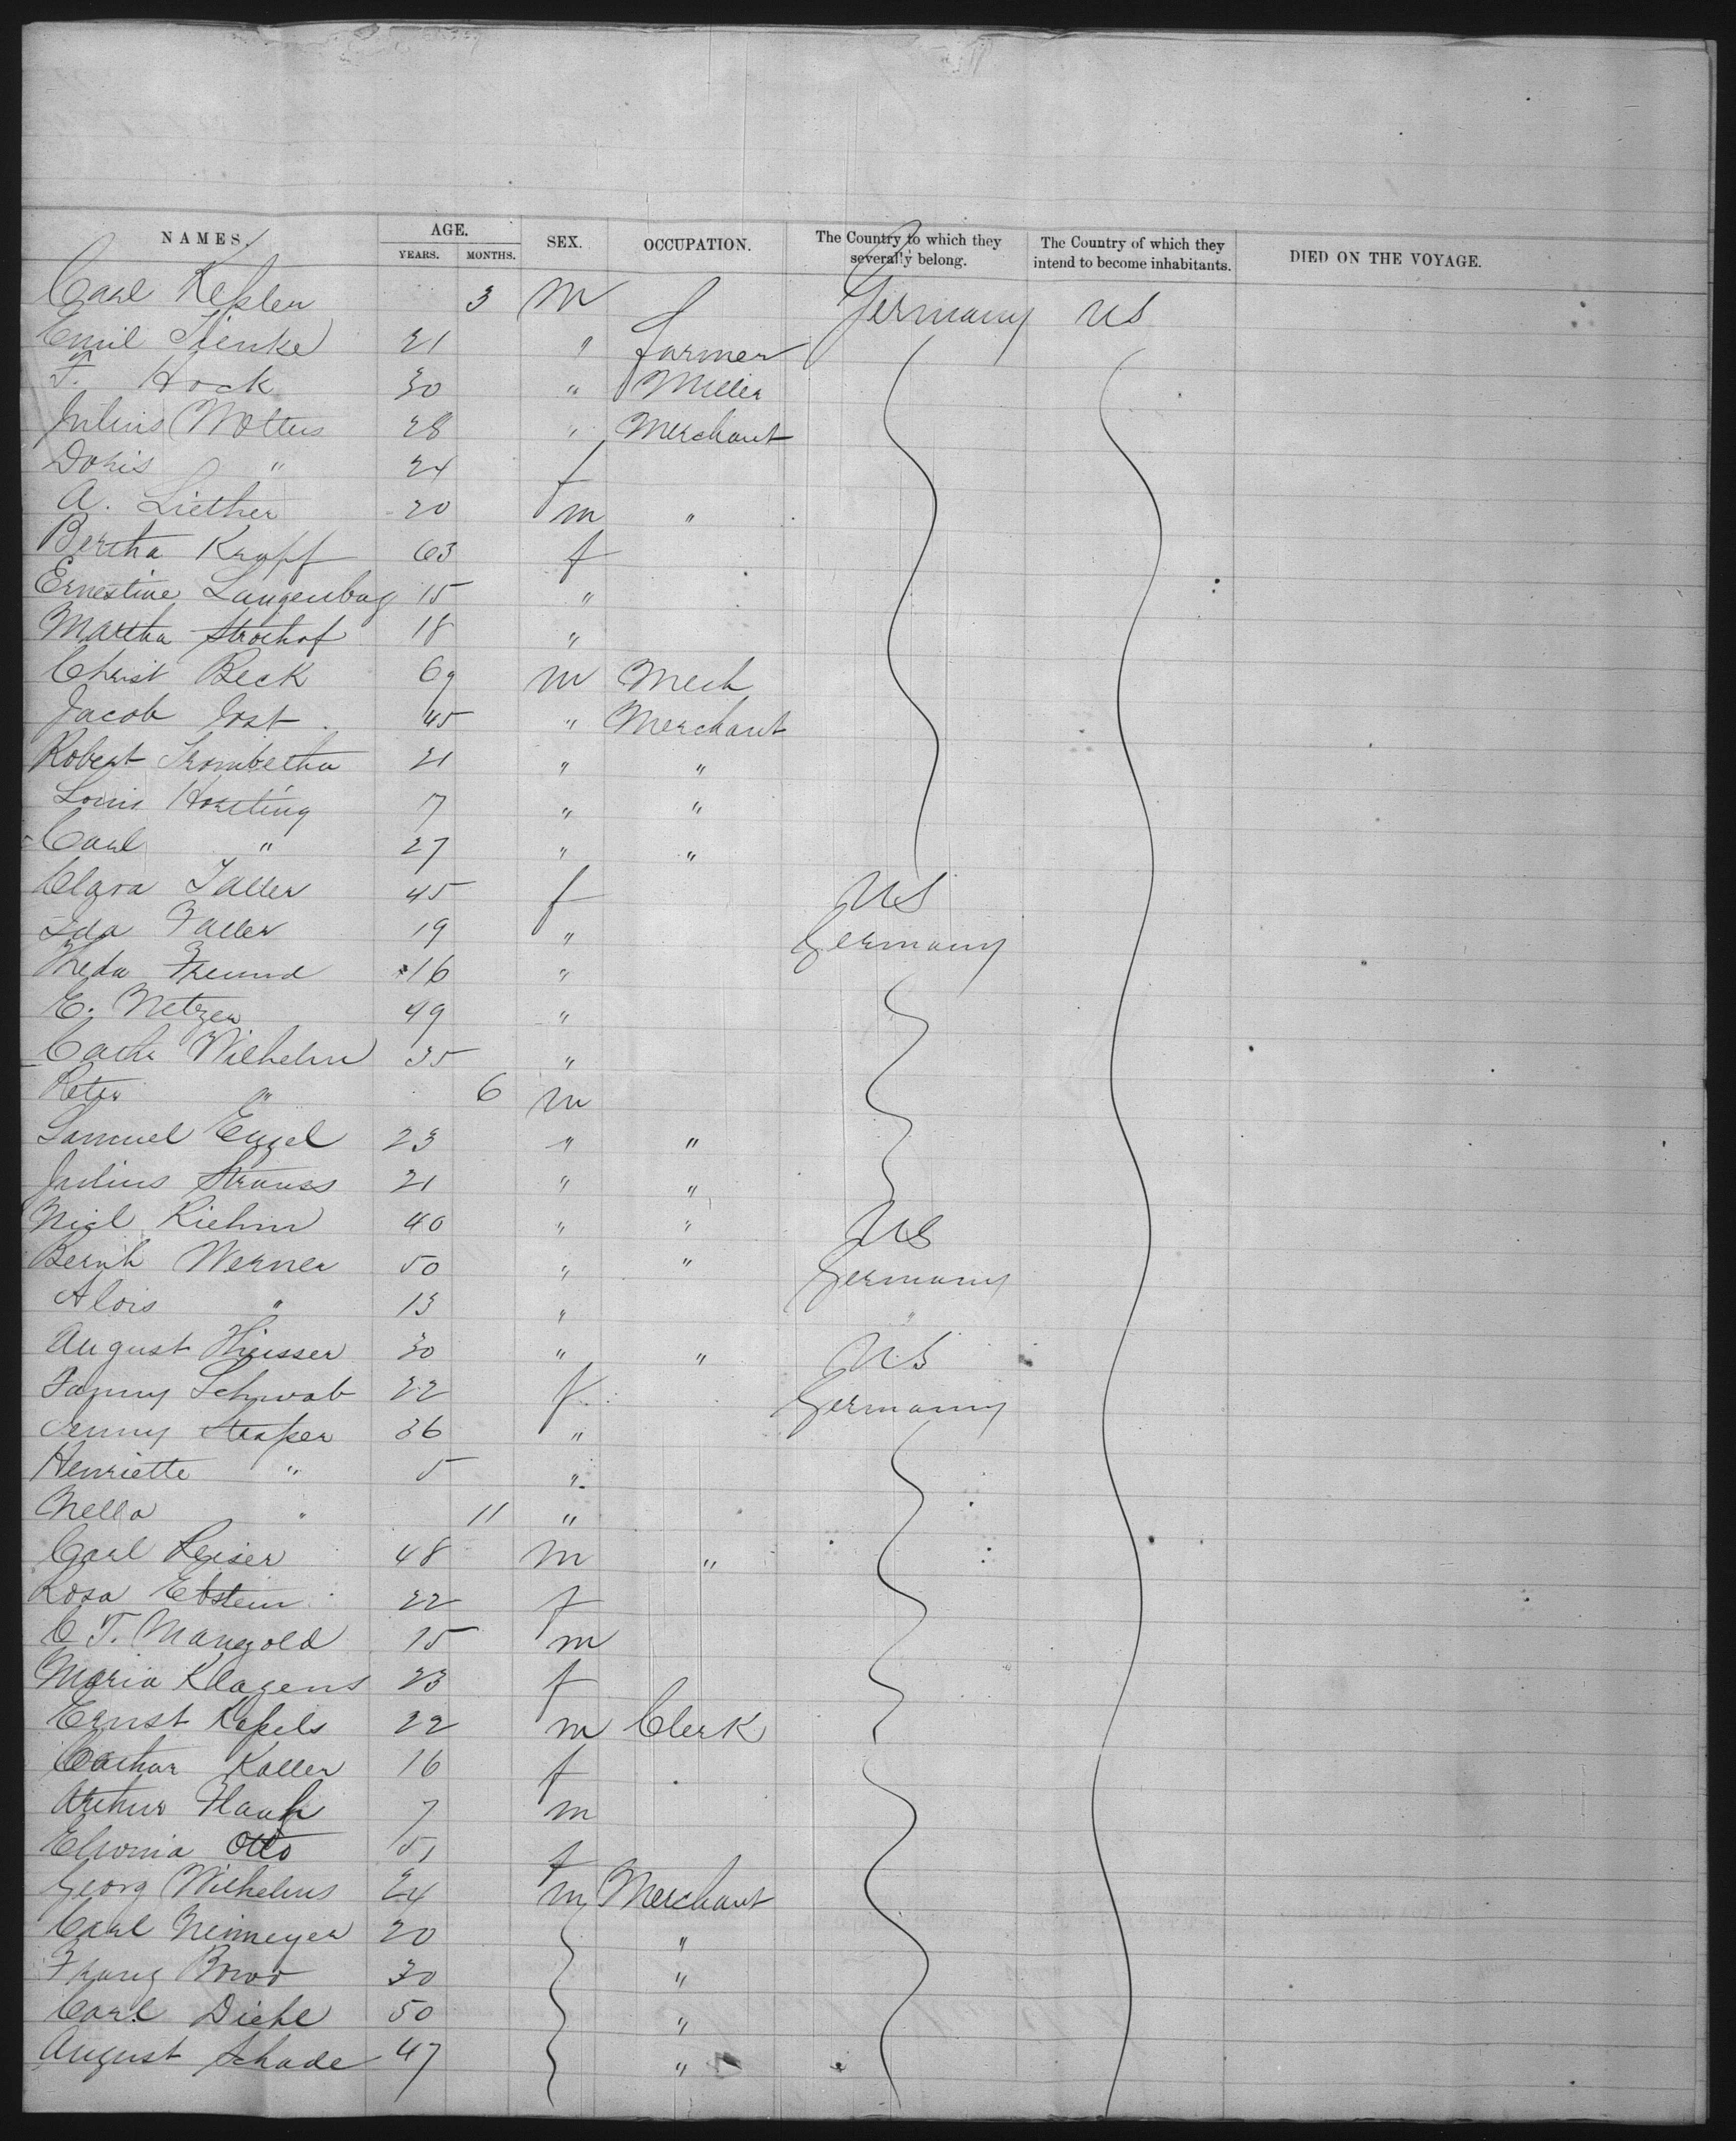 NAMES. AGE. SEX. OCCUPATION. The Country to which they severally belong. The Country of which they intend to become inhabitants. DIED ON THE VOYAGE.
YEARS. MONTHS.
Carl Kessler 3 m Germany US
Emil Thenke 21 " farmer
F. Hock 30 " Miller
Julius Wolters 28 " Merchant
Doris " 24 f
A. Liether 20 m "
Bertha Kropf 63 f
Ernestine Langenbag 15 "
Martha Strothof 18 "
Christ Beck 69 m Mech
Jacob Jost 45 " Merchant
Robert Trombetha 21 " "
Louis Hoerting 7 " "
Carl " 27 " "
Clara Faller 45 f US
Ida Faller 19 " Germany
Theda Freund 16 "
E. Netzer 49 "
Cath Wilhelm 35 "
Peter " 6 m
Samuel Engel 23 " "
Julius Strauss 21 " "
Nicl Riehm 40 " " US
Bernh Werner 50 " " Germany
Alois " 13 " "
August Hiusser 30 " " US
Fanny Schwab 22 f Germany
Jenny Strasser 36 "
Henriette " 5 "
Nella " 11 "
Carl Reiser 48 m "
Rosa Ebstein 22 f
C. F. Mangold 15 m
Maria Klagens 23 f
Ernst Kapels 22 m Clerk
Cathar Kaller 16 f
Arthur Hauk 7 m
Elwina Otto 51 f
Georg Wilhelms 24 m Merchant
Carl Neimeyer 20 "
Franz 30 "
Carl Diehl 50 "
August Schade 47 "